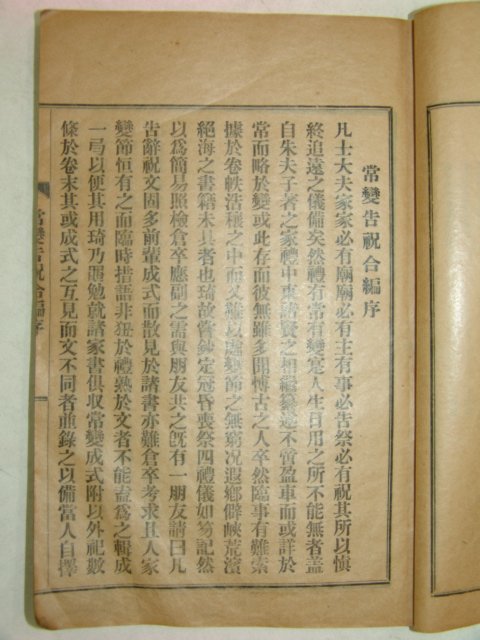 常變告祝合編序
凡士大夫家家必有廟廟必有主有事必告祭必有祝其所以愼
終追遠之儀備矣然禮有常有變寔人生日用之所不能無者蓋
自朱夫子著之家禮中東諸賢之相繼纂述不啻盈車而或詳於
常而略於變或此存而彼無雖多聞博古之人卒然臨事有難索
據於卷帙浩穰之中而又難以處變節之無窮况遐鄕僻峽荒濱
絕海之書籍未具者也琦故嘗鈔定冠昏喪祭四禮儀如笏記然
以爲簡易照檢倉卒應副之需與朋友共之旣有一朋友請曰凡
告辭祝文固多前輩成式而散見於諸書亦難倉卒考求且人家
變節恒有之而臨時措語非嫺於禮熟於文者不能盍爲之輯成
一弓以便其用琦乃黽勉就諸家書俱収常變成式附以外祀數
條於卷末其或成式之互見而文不同者並錄之以備當人自擇
常變告祝合編序